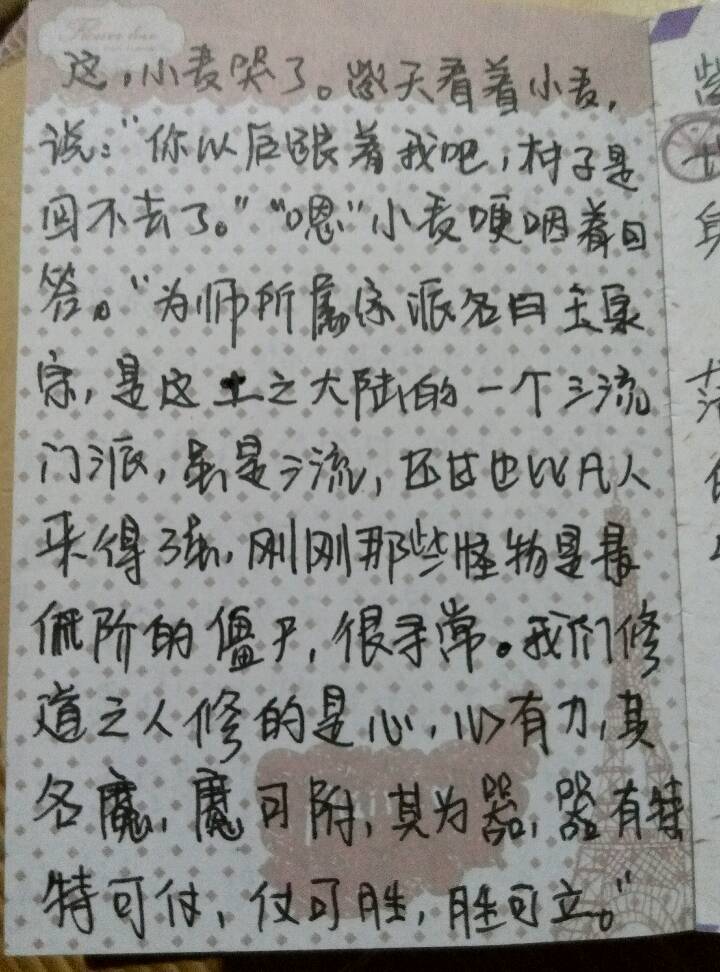 这,小麦哭了。傲天看着小麦,
说:"你以后跟着我吧,村子是
回不去了。""嗯"小麦哽咽着回
答。"为师所属宗派名曰玉泉
宗,是这土之大陆的一个三流
门派,虽是三流,还甘也以凡人
来得强,刚刚那些怪物是最
低阶的僵尸,很寻常。我们修
道之人修的是心,心有力,其
名魔,魔可附,其为器,器有特
特可付,仗可胜,胜可立。"